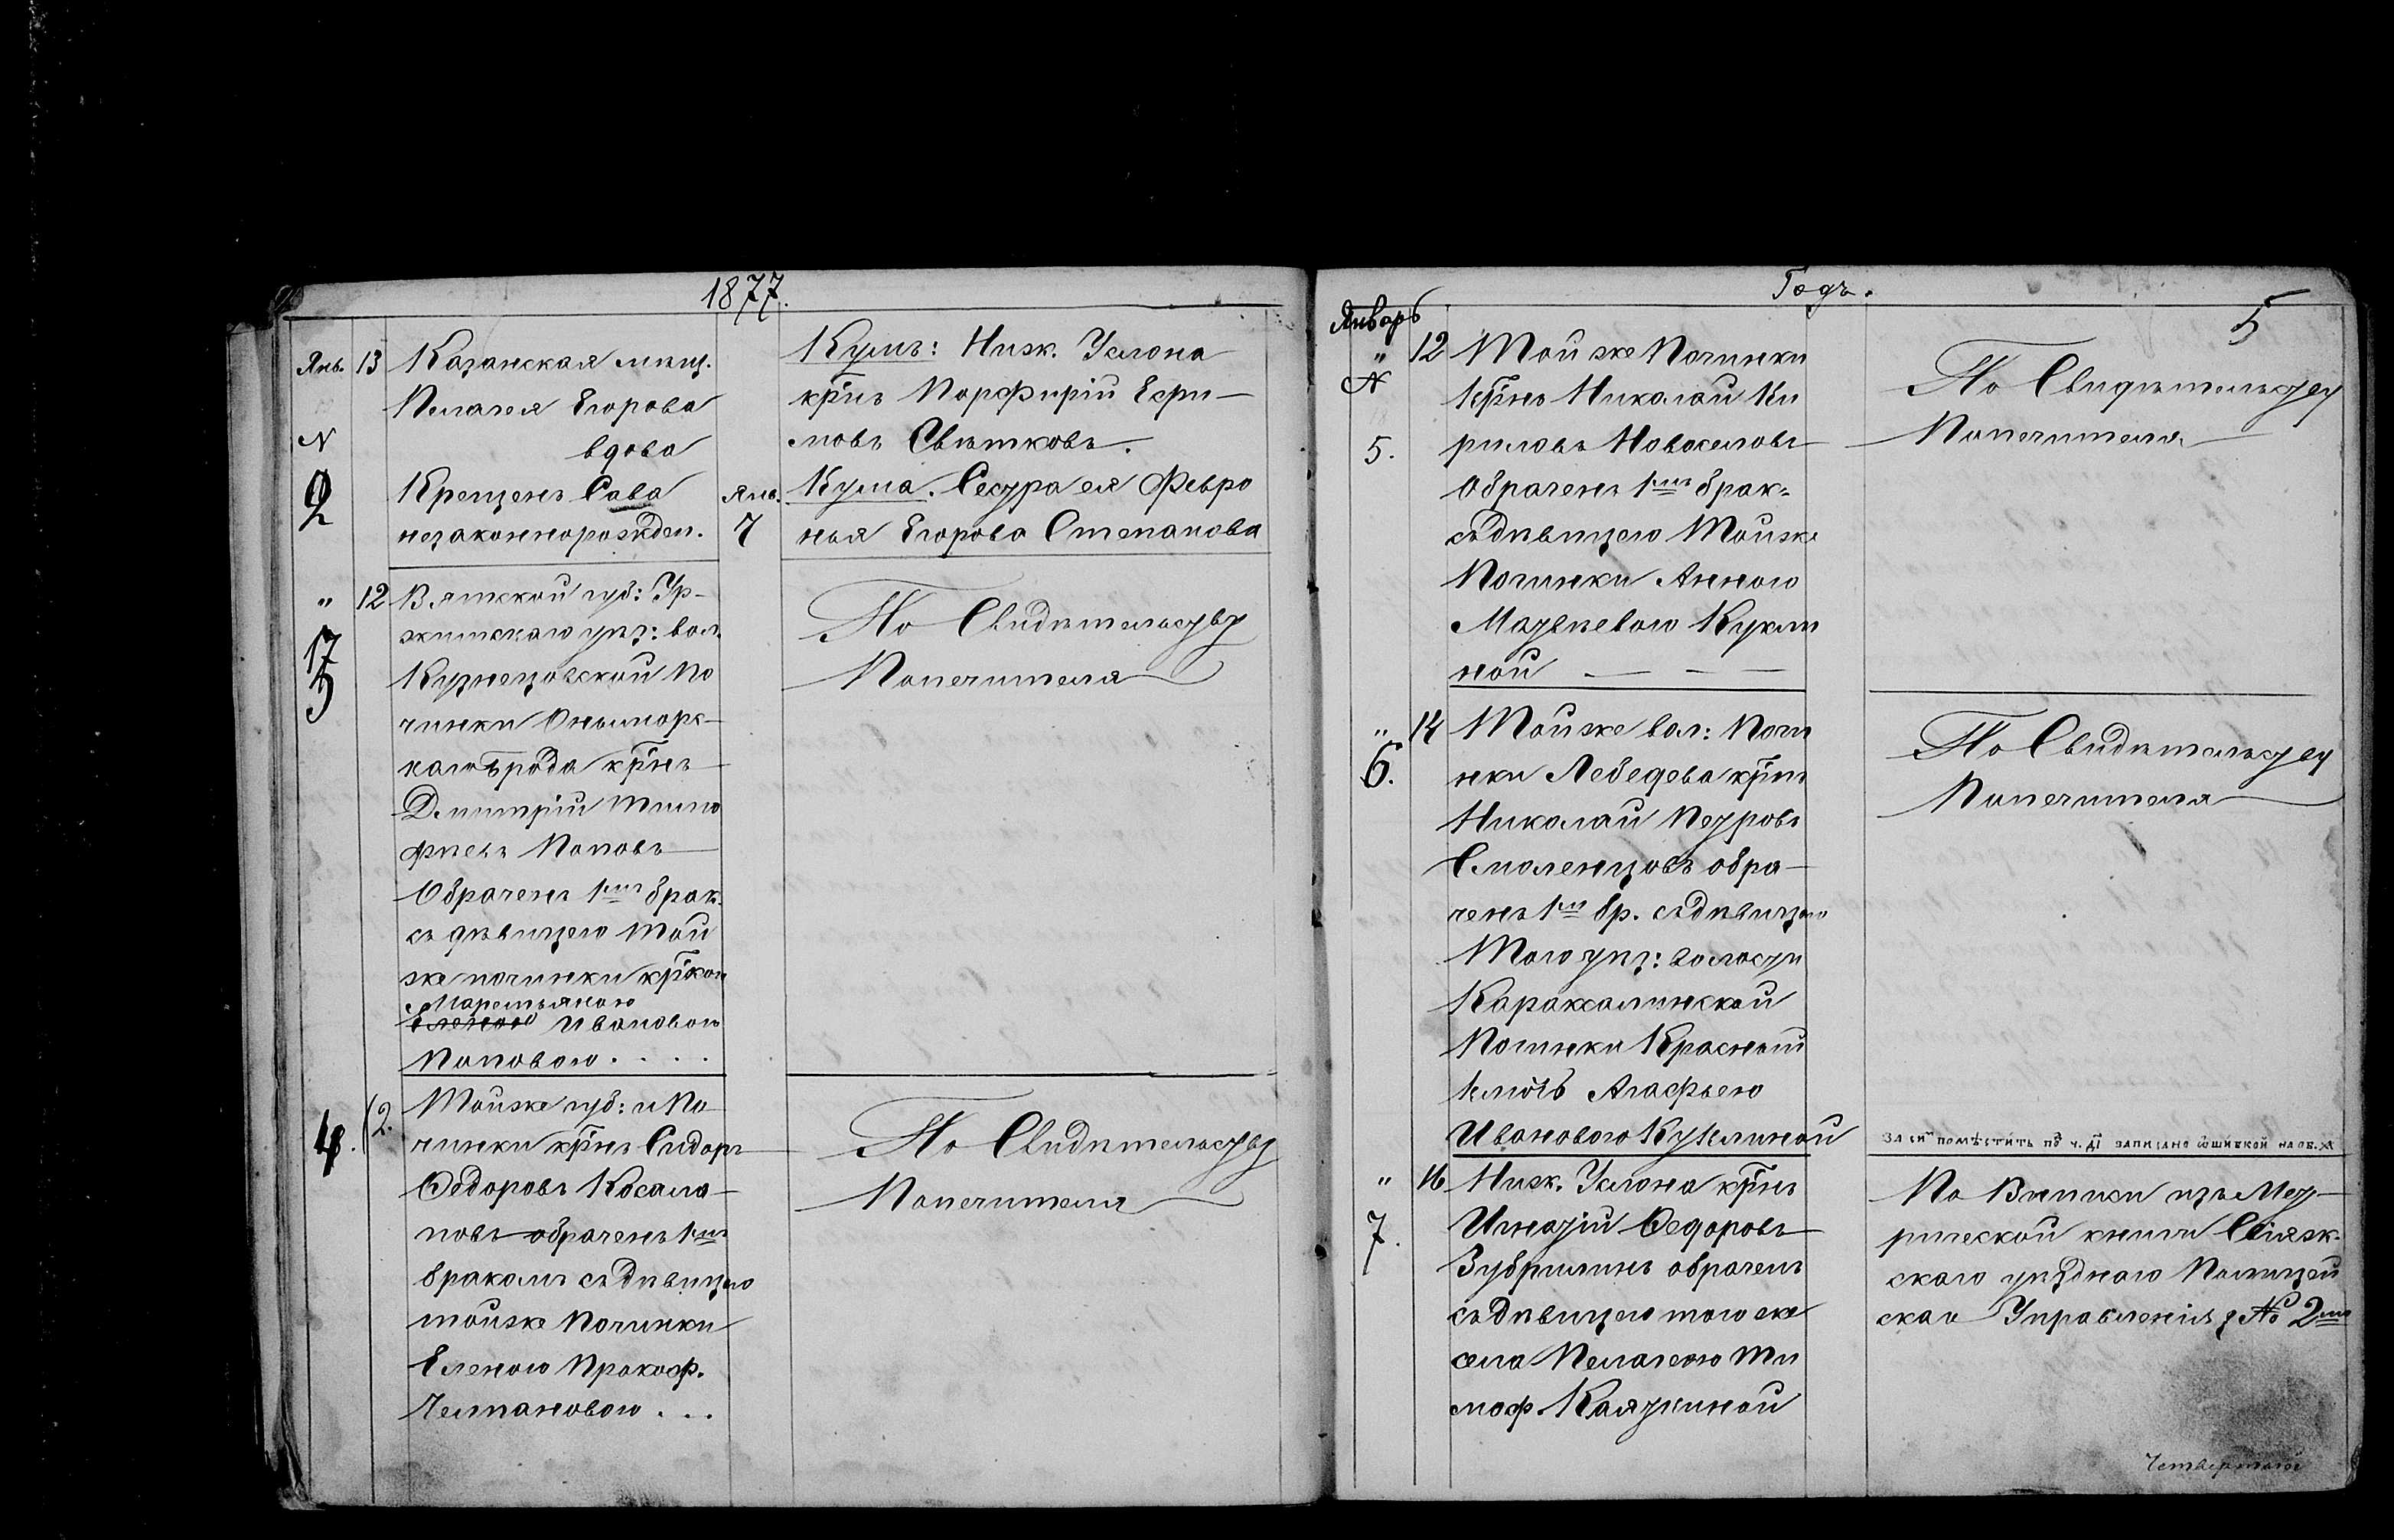 1877.
Янв. 13 Казанская мѣщ.
Пелагея Егорова
вдова
N
2 Крещенъ Сава Янв.
незаконнорожден. 7
Кумъ: Низк. Услона
крⷭ҇нъ Порфирій Ефи—
мовъ Свѣтковъ.
Кума. Сестра ея Февро
нья Егорова Степанова
" 12 Вятской губ: Ур-
жумскаго уѣз: вол.
Кузнецовской по
чинки
рода крнъ
Дмитрій Тимо
фѣевъ Поповъ
Обраченъ 1мъ брак.
съ дѣвицею той
же починки
Маремьяною
Еленою Ивановою
Поповою . . . .
По Свидѣтельству
Попечителя
4. 12. Той же губ: и По
чинки крнъ Сидоръ
Ѳедоровъ
обраченъ 1мъ
бракомъ съ дѣвицею
той же Починки
Еленою Прокоф.
Челпановою . . .
По Свидѣтельству
Попечителя
Годъ.
5
Январь
" 12 Той же Починки
N крнъ Николай Ки
5. риловъ Новоселовъ
Обраченъ 1мъ брак=
съ дѣвицею Той же
Починки Анною
Матвѣевою Кукли
ной — —
По Свидѣтельству
Попечителя
" 14 Той же вол: Почи
6. нки Лебедева крнъ
Николай Петровъ
Смоленцовъ обра—
ченъ 1мъ бр. съ дѣвицею
Того уѣз: волости
Починки Красный
ключь Агафьею
Ивановою Куклиной
По Свидѣтельству
Попечителя
за си помѣстить под ч. записано ошибкой на об.
" 16 Низк. Услона крнъ
7. Игнатій Ѳедоровъ
Зубрилинъ обраченъ
съ дѣвицею того же
села Пелагеею Ти
моф. Калягиной
По Выписи изъ Мет—
рической книги Свіяж-
скаго уѣзднаго Полицей
скаго Управленія з № 2мъ
Четвертый